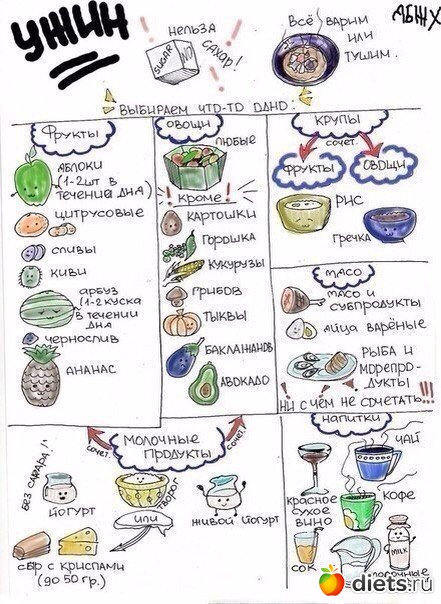 УЖИН
SUGAR
NO
НЕЛЬЗА
САХАР!
ВСЁ ВАРИМ
ИЛИ
ТУШИМ.
ВЫБИРАЕМ ЧТО-ТО ОДНО:
ФРУКТЫ
АБЛОКИ
(1-2ШТ В
ТЕЧЕНИИ ДНА)
ЦИТРУСОВЫЕ
СЛИВЫ
КИВИ
АРБУЗ
(1-2 КУСКА
В ТЕЧЕНИИ
ДНА
ЧЕРНОСЛИВ
АНАНАС
ОВОЩИ
ЛЮБЫЕ
! КРОМЕ !
КАРТОШКИ
ГОРОШКА
КУКУРУЗЫ
ГРИБОВ
ТЫКВЫ
БАКЛАЖАНОВ
АВОКАДО
КРУПЫ
СОЧЕТ.
ФРУКТЫ
ОВОЩИ
РИС
ГРЕЧКА
МАСО
МАСО И
СУБПРОДУКТЫ
АЙЦА ВАРЁНЫЕ
РЫБА И
МОРЕПРО-
ДУКТЫ
НИ С ЧЕМ НЕ СОЧЕТАТЬ!!!
МОЛОЧНЫЕ
ПРОДУКТЫ
СОЧЕТ.
СОЧЕТ.
БЕЗ САХАРА!
ЙОГУРТ
ТВОРОГ
ИЛИ
ЖИВОЙ ЙОГУРТ
СЫР С КРИСПАМИ
(ДО 50 ГР.)
НАПИТКИ
ЧАЙ
КРАСНОЕ
СУХОЕ
ВИНО
КОФЕ
СОК
MILK
diets.ru